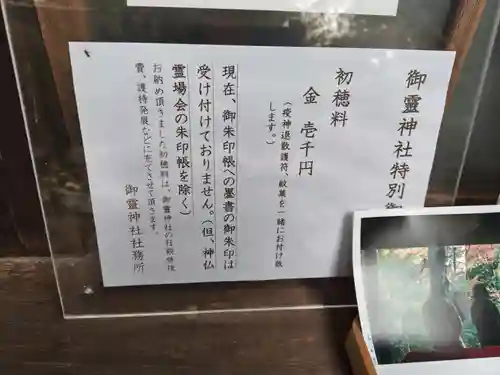 御靈神社特別御
初穂料
金 壱千円
(疫神退散護符、紋菓を一緒にお付け致
します。)
現在、御朱印帳への墨書の御朱印は
受け付けておりません。(但、神仏
霊場会の朱印帳を除く)
お納め頂きました初穂料は、御靈神社の
費、護持発展などに充てさせて頂きます。
御靈神社社務所